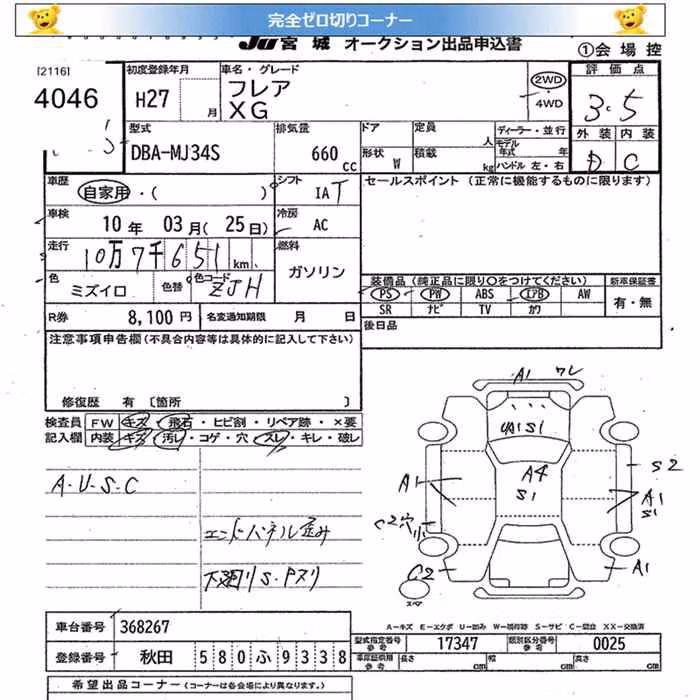 完全ゼロ切りコーナー
JU宮城 オークション出品申込書
①会場控
[2116]
4046
初度登録年月
H27 月
車名・グレード
フレア
XG
2WD
4WD
評価点
3.5
外装 内装
D C
型式
DBA-MJ34S
排気量
660 cc
ドア
形状 W
定員 人
積載 kg
ディーラー・並行
モデル年式 年
ハンドル 左・右
車歴
自家用・( )
シフト
IAT
セールスポイント (正常に機能するものに限ります)
車検
10年 03月(25日)
冷房
AC
走行
10万7千651km
燃料
ガソリン
色
ミズイロ
色替
色コード
ZJH
装備品(純正品に限り○をつけてください)
新車保証書
PS PW ABS エアB AW
SR ナビ TV カワ
有・無
R券 8,100円
名変通知期限 月 日
後日品
注意事項申告欄(不具合内容等は具体的に記入して下さい)
修復歴 有 [箇所 ]
検査員 FW キズ・飛石・ヒビ割・リペア跡・×要
記入欄 内装 キズ・汚レ・コゲ・穴・スレ・キレ・破レ
A・U・S・C
エンドパネル歪み
下廻りS・Pスリ
A1 ワレ
UA1S1
A4
S1
A1
S2
A1
S1
C2穴
小
C2
A1
スペア
A－キズ E－エクボ U－凹み W－補修跡 S－サビ C－腐蝕 XX－交換済
車台番号 368267
型式指定番号 参考 17347
類別区分番号 参考 0025
登録番号 秋田 580ふ9338
車庫証明用 参考 長さ cm 幅 cm 高さ cm
希望出品コーナー (コーナーは各会場により異なります。)